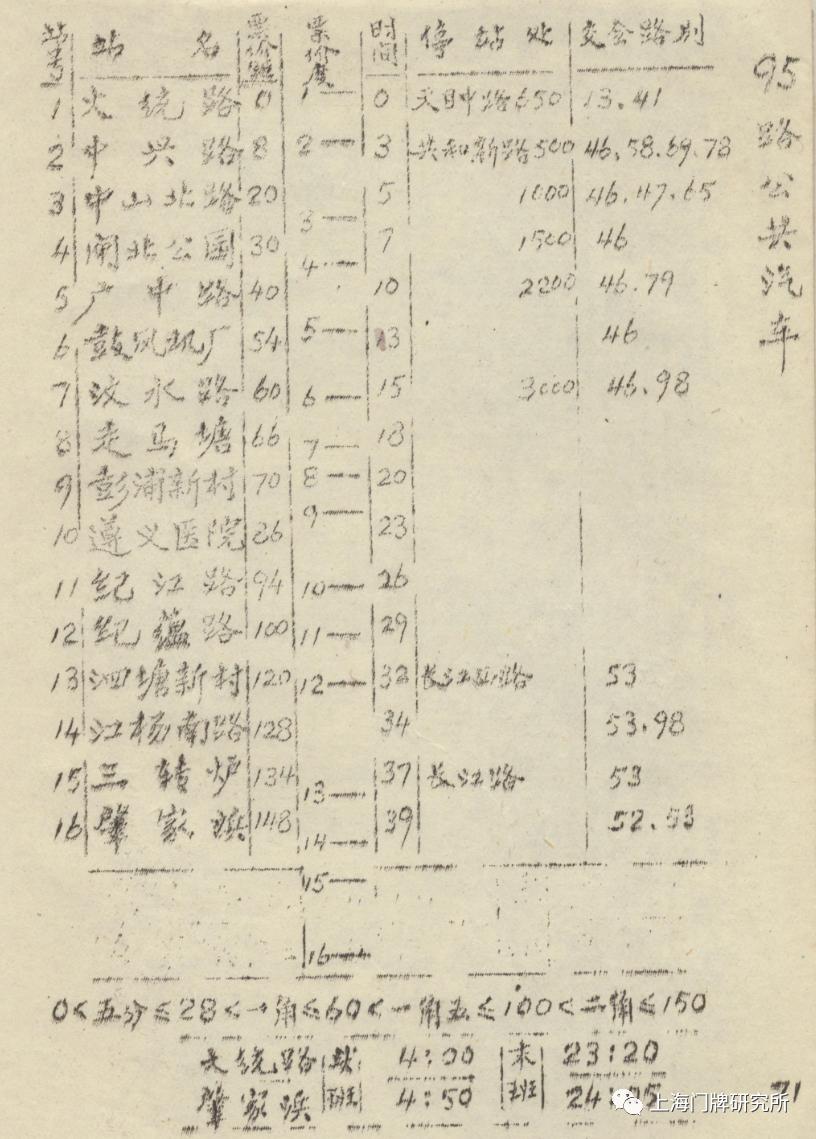 站号 站名 票价距 票价度 时间 停站处 交会路别
95路公共汽车
1 大统路 0 1— 0 天目中路650 13.41
2 中兴路 8 2— 3 共和新路500 46.58.69.78
3 中山北路 20 3— 5 1000 46.47.65
4 闸北公园 30 4— 7 1500 46
5 广中路 40 10 2200 46.79
6 鼓风机厂 54 5— 13 46
7 汶水路 60 6— 15 3000 46.98
8 走马塘 66 7— 18
9 彭浦新村 70 8— 20
9—
10 遵义医院 86 23
11 纪江路 94 10— 26
12 纪蕴路 100 11— 29
13 泗塘新村 120 12— 32 长江西路 53
14 江杨南路 128 34 53.98
15 三转炉 134 13— 37 长江路 53
16 肇家浜 148 14— 39 52.53
15—
16—
0<五分≤28<一角≤60<一角五≤100<二角≤150
大统路 头班 4:00 末班 23:20
肇家浜 4:50 24:05
21
上海门牌研究所